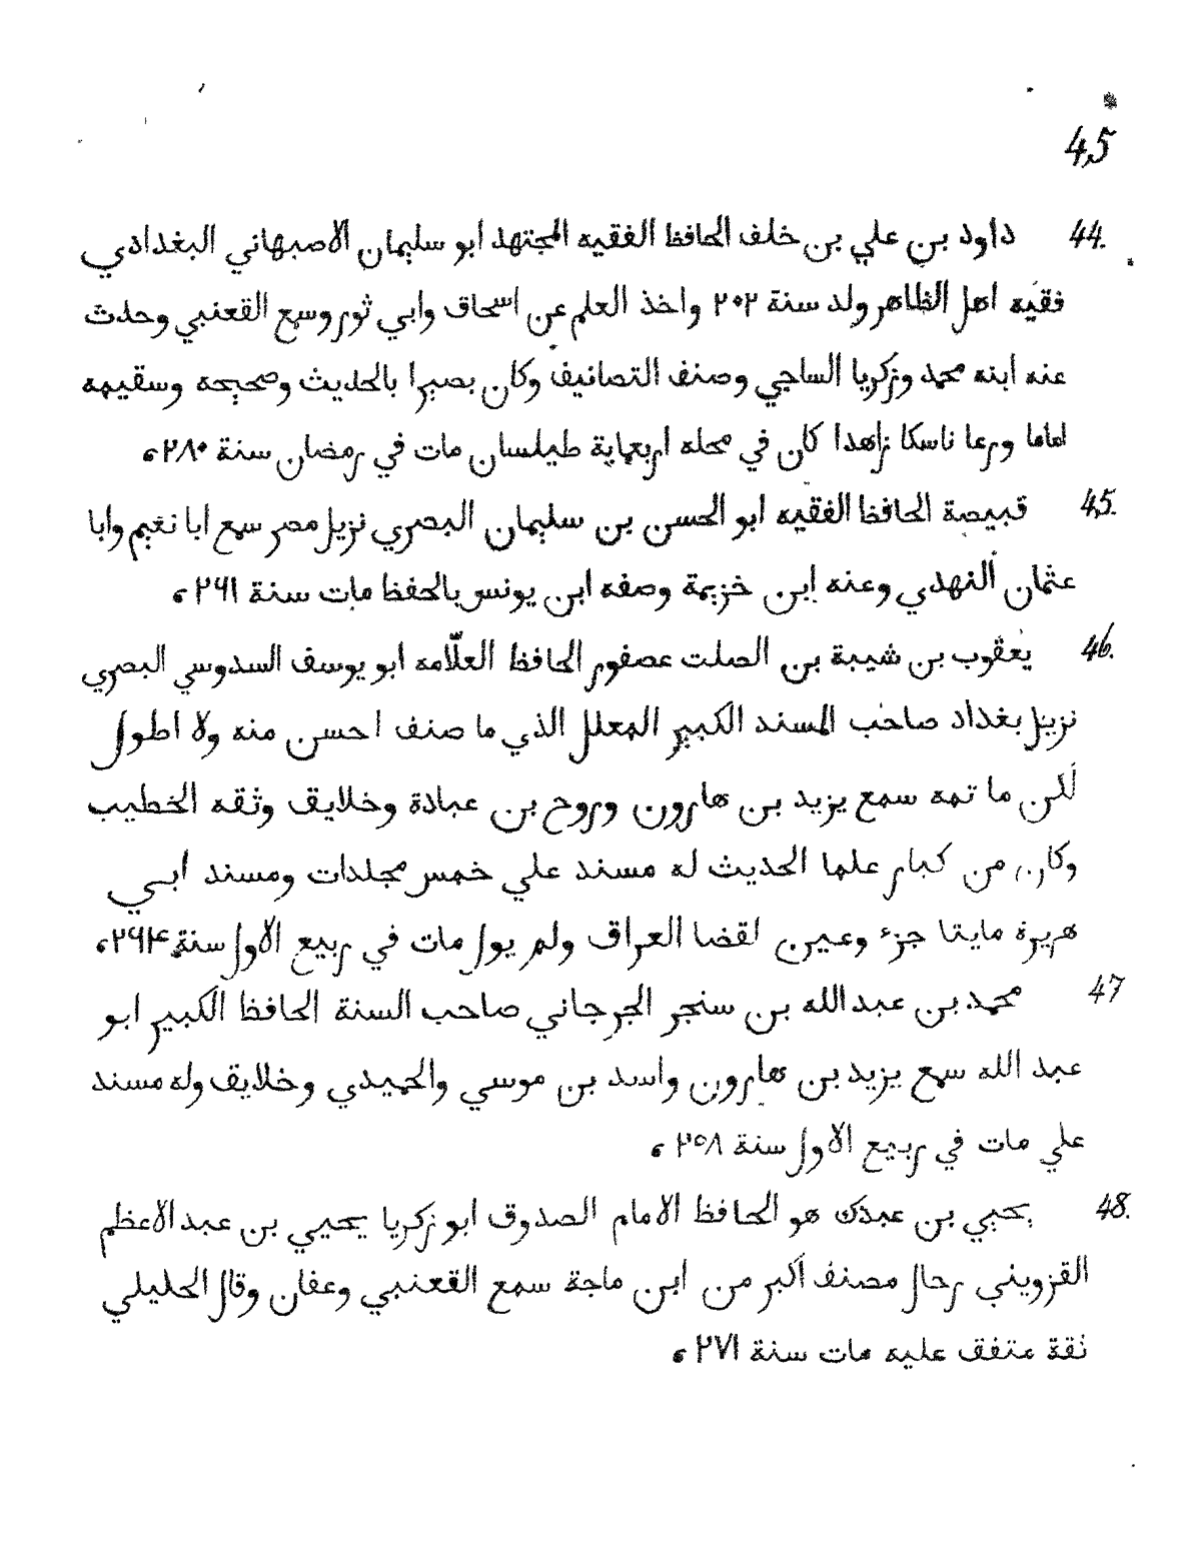 45
44. داود بن علي بن خلف الحافظ الفقيه المجتهد ابو سليمان الاصبهاني البغدادي
فقيه اهل الظاهر ولد سنة ٢٠٢ واخذ العلم عن اسحاق وابي ثور وسمع القعنبي وحدث
عنه ابنه محمد وزكريا الساجي وصنف التصانيف وكان بصيرا بالحديث وصحيحه وسقيمه
اماما ورعا ناسكا زاهدا كان في محله اربعماية طيلسان مات في رمضان سنة ٢٨٠،
45. قبيصة الحافظ الفقيه ابو الحسن بن سليمان البصري نزيل مصر سمع ابا نعيم وابا
عثمان النهدي وعنه ابن خزيمة وصفه ابن يونس بالحفظ مات سنة ٢٦١،
46. يعقوب بن شيبة بن الصلت عصفور الحافظ العلّامه ابو يوسف السدوسي البصري
نزيل بغداد صاحب المسند الكبير المعلل الذي ما صنف احسن منه ولا اطول
لكن ما تمه سمع يزيد بن هارون وروح بن عبادة وخلايق وثقه الخطيب
وكان من كبار علما الحديث له مسند علي خمس مجلدات ومسند ابي
هريرة مايتا جزء وعين لقضا العراق ولم يول مات في ربيع الاول سنة ٢٦٢،
47 محمد بن عبد الله بن سنجر الجرجاني صاحب السنة الحافظ الكبير ابو
عبد الله سمع يزيد بن هارون واسد بن موسي والحميدي وخلايق وله مسند
علي مات في ربيع الاول سنة ٢٥٨،
48. يحيي بن عبدك هو الحافظ الامام الصدوق ابو زكريا يحيي بن عبد الاعظم
القزويني رحال مصنف اكبر من ابن ماجة سمع القعنبي وعفان وقال الخليلي
ثقة متفق عليه مات سنة ٢٧١،